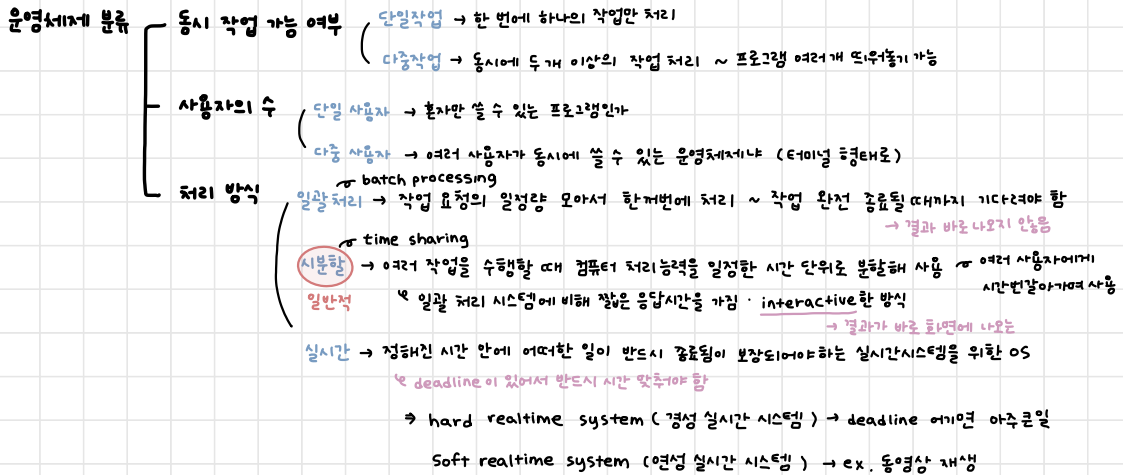 운영체제 분류 동시 작업 가능 여부 단일작업 → 한 번에 하나의 작업만 처리
다중작업 → 동시에 두개 이상의 작업 처리 ~ 프로그램 여러개 띄워놓기 가능
사용자의 수 단일 사용자 → 혼자만 쓸 수 있는 프로그램인가
다중 사용자 → 여러 사용자가 동시에 쓸 수 있는 운영체제냐 (터미널 형태로)
batch processing
처리 방식 일괄처리 → 작업 요청의 일정량 모아서 한꺼번에 처리 ~ 작업 완전 종료될 때까지 기다려야 함
→ 결과 바로 나오지 않음
time sharing
시분할 → 여러 작업을 수행할 때 컴퓨터 처리능력을 일정한 시간 단위로 분할해 사용 여러 사용자에게
시간번갈아가며 사용
일반적 일괄 처리 시스템에 비해 짧은 응답시간을 가짐 · interactive한 방식
→ 결과가 바로 화면에 나오는
실시간 → 정해진 시간 안에 어떠한 일이 반드시 종료됨이 보장되어야하는 실시간시스템을 위한 OS
deadline이 있어서 반드시 시간 맞춰야 함
⇒ hard realtime system (경성 실시간 시스템) → deadline 어기면 아주큰일
Soft realtime system (연성 실시간 시스템) → ex. 동영상 재생